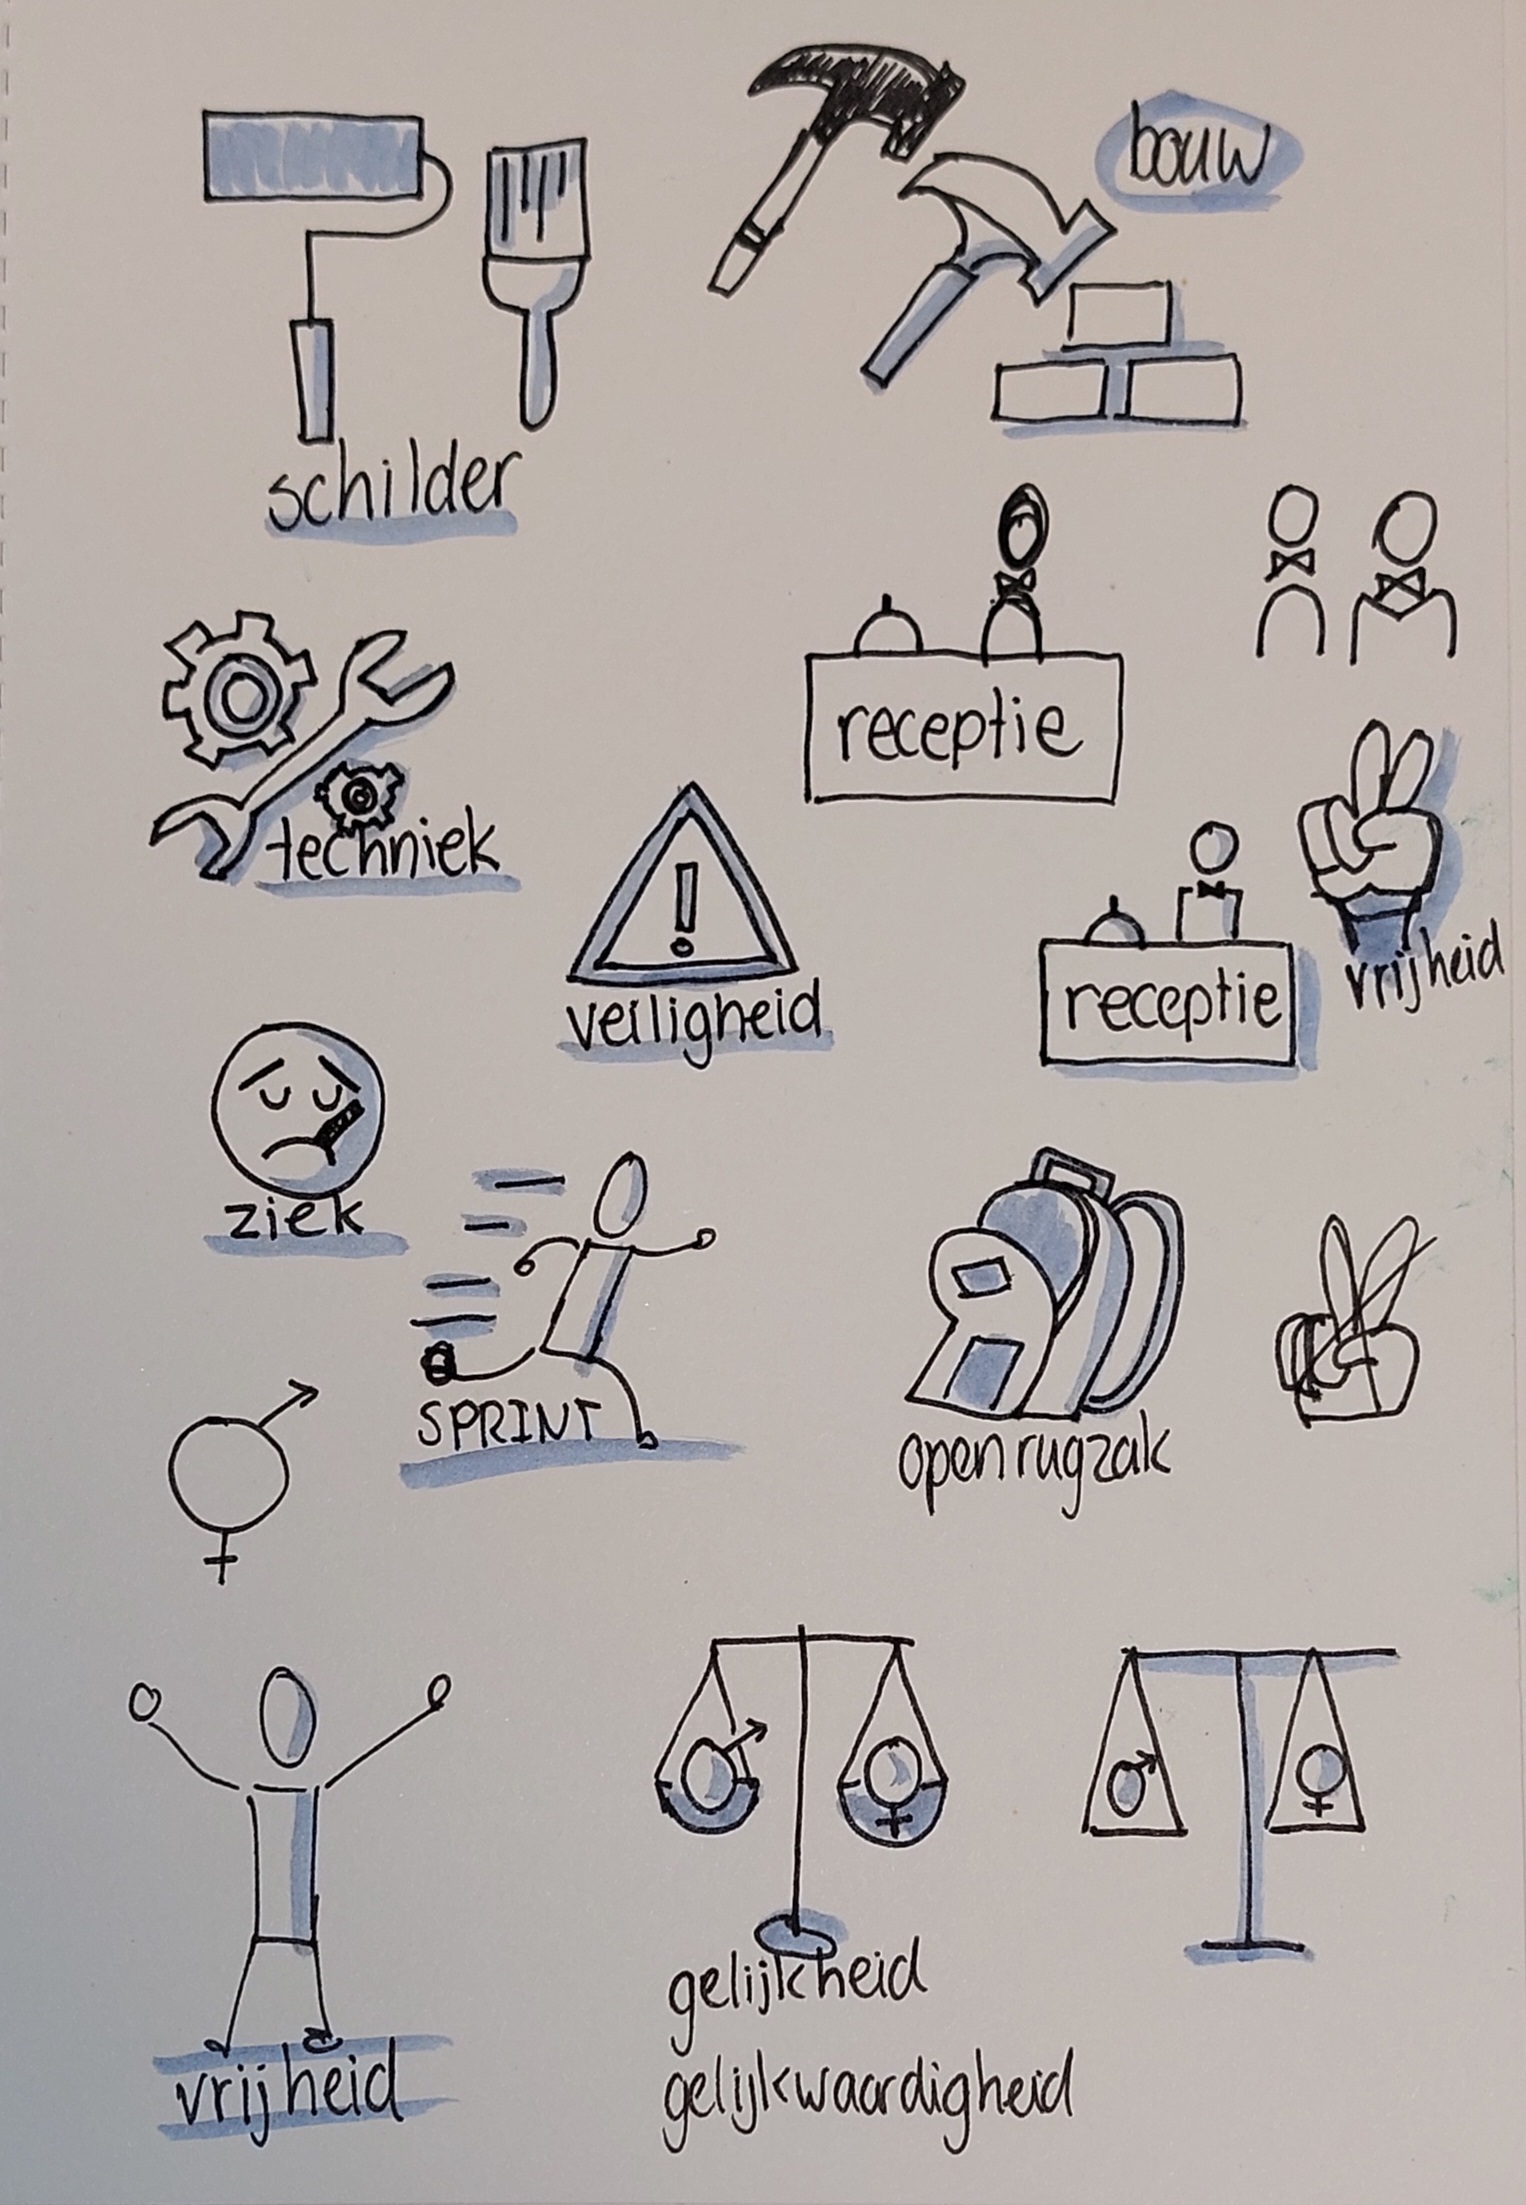 bouw
schilder
receptie
techniek
veiligheid
vrijheid
receptie
ziek
SPRINT
open rugzak
gelijkheid
gelijkwaardigheid
vrijheid